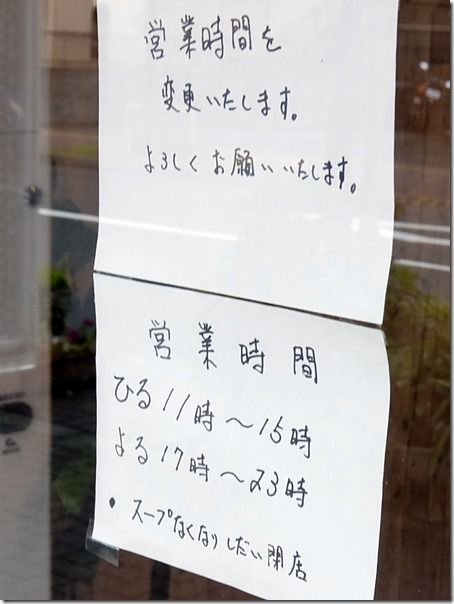 営業時間を
変更いたします。
よろしくお願いいたします。
営業時間
ひる11時～15時
よる17時～23時
・スープなくなりしだい閉店